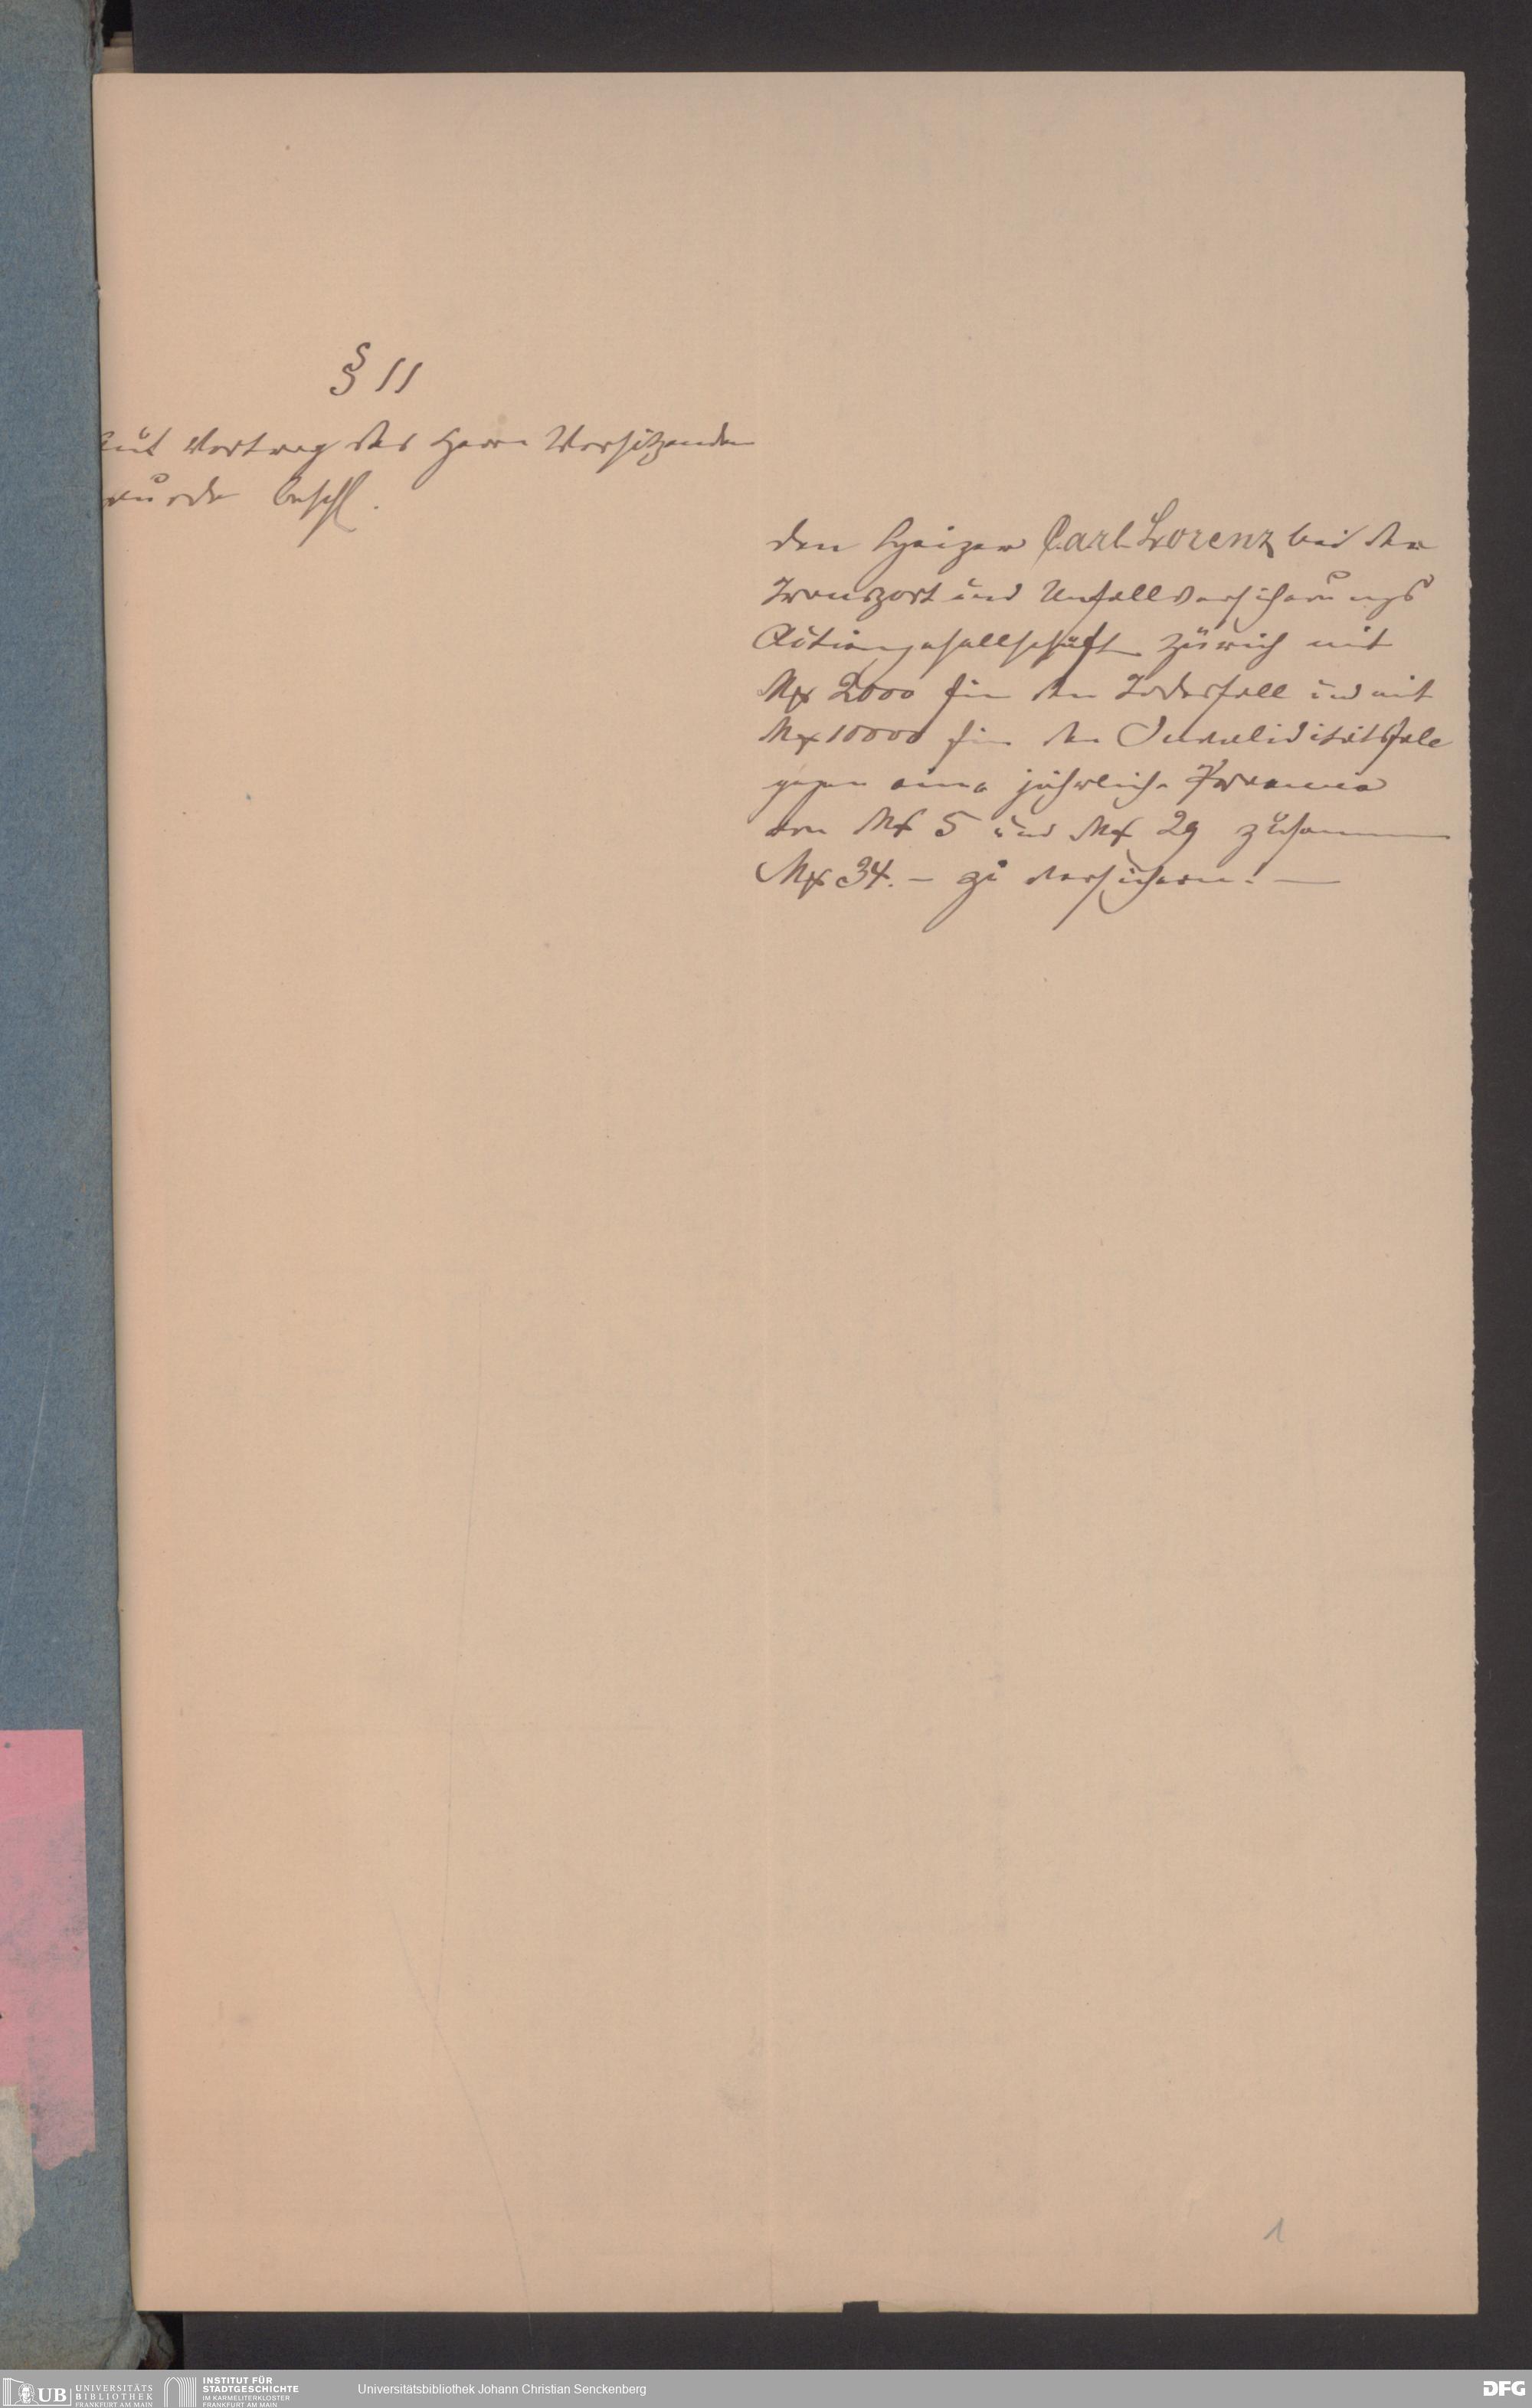 § 11
Auf Vortrag des Herrn Vorsitzenden
wurde beschl.
den Heizer Carl Lorenz bei der
Transport und Unfallversicherungs
Actiengesellschaft Zürich mit
Mk 2000 für den Todesfall und mit
Mk 10000 für den Invaliditätsfall
gegen eine jährliche Praemie
von Mk 5 und Mk 29 zusammen
Mk 34. – zu versichern. —
1
UB UNIVERSITÄTS
BIBLIOTHEK
FRANKFURT AM MAIN
INSTITUT FÜR
STADTGESCHICHTE
IM KARMELITERKLOSTER
FRANKFURT AM MAIN
Universitätsbibliothek Johann Christian Senckenberg
DFG